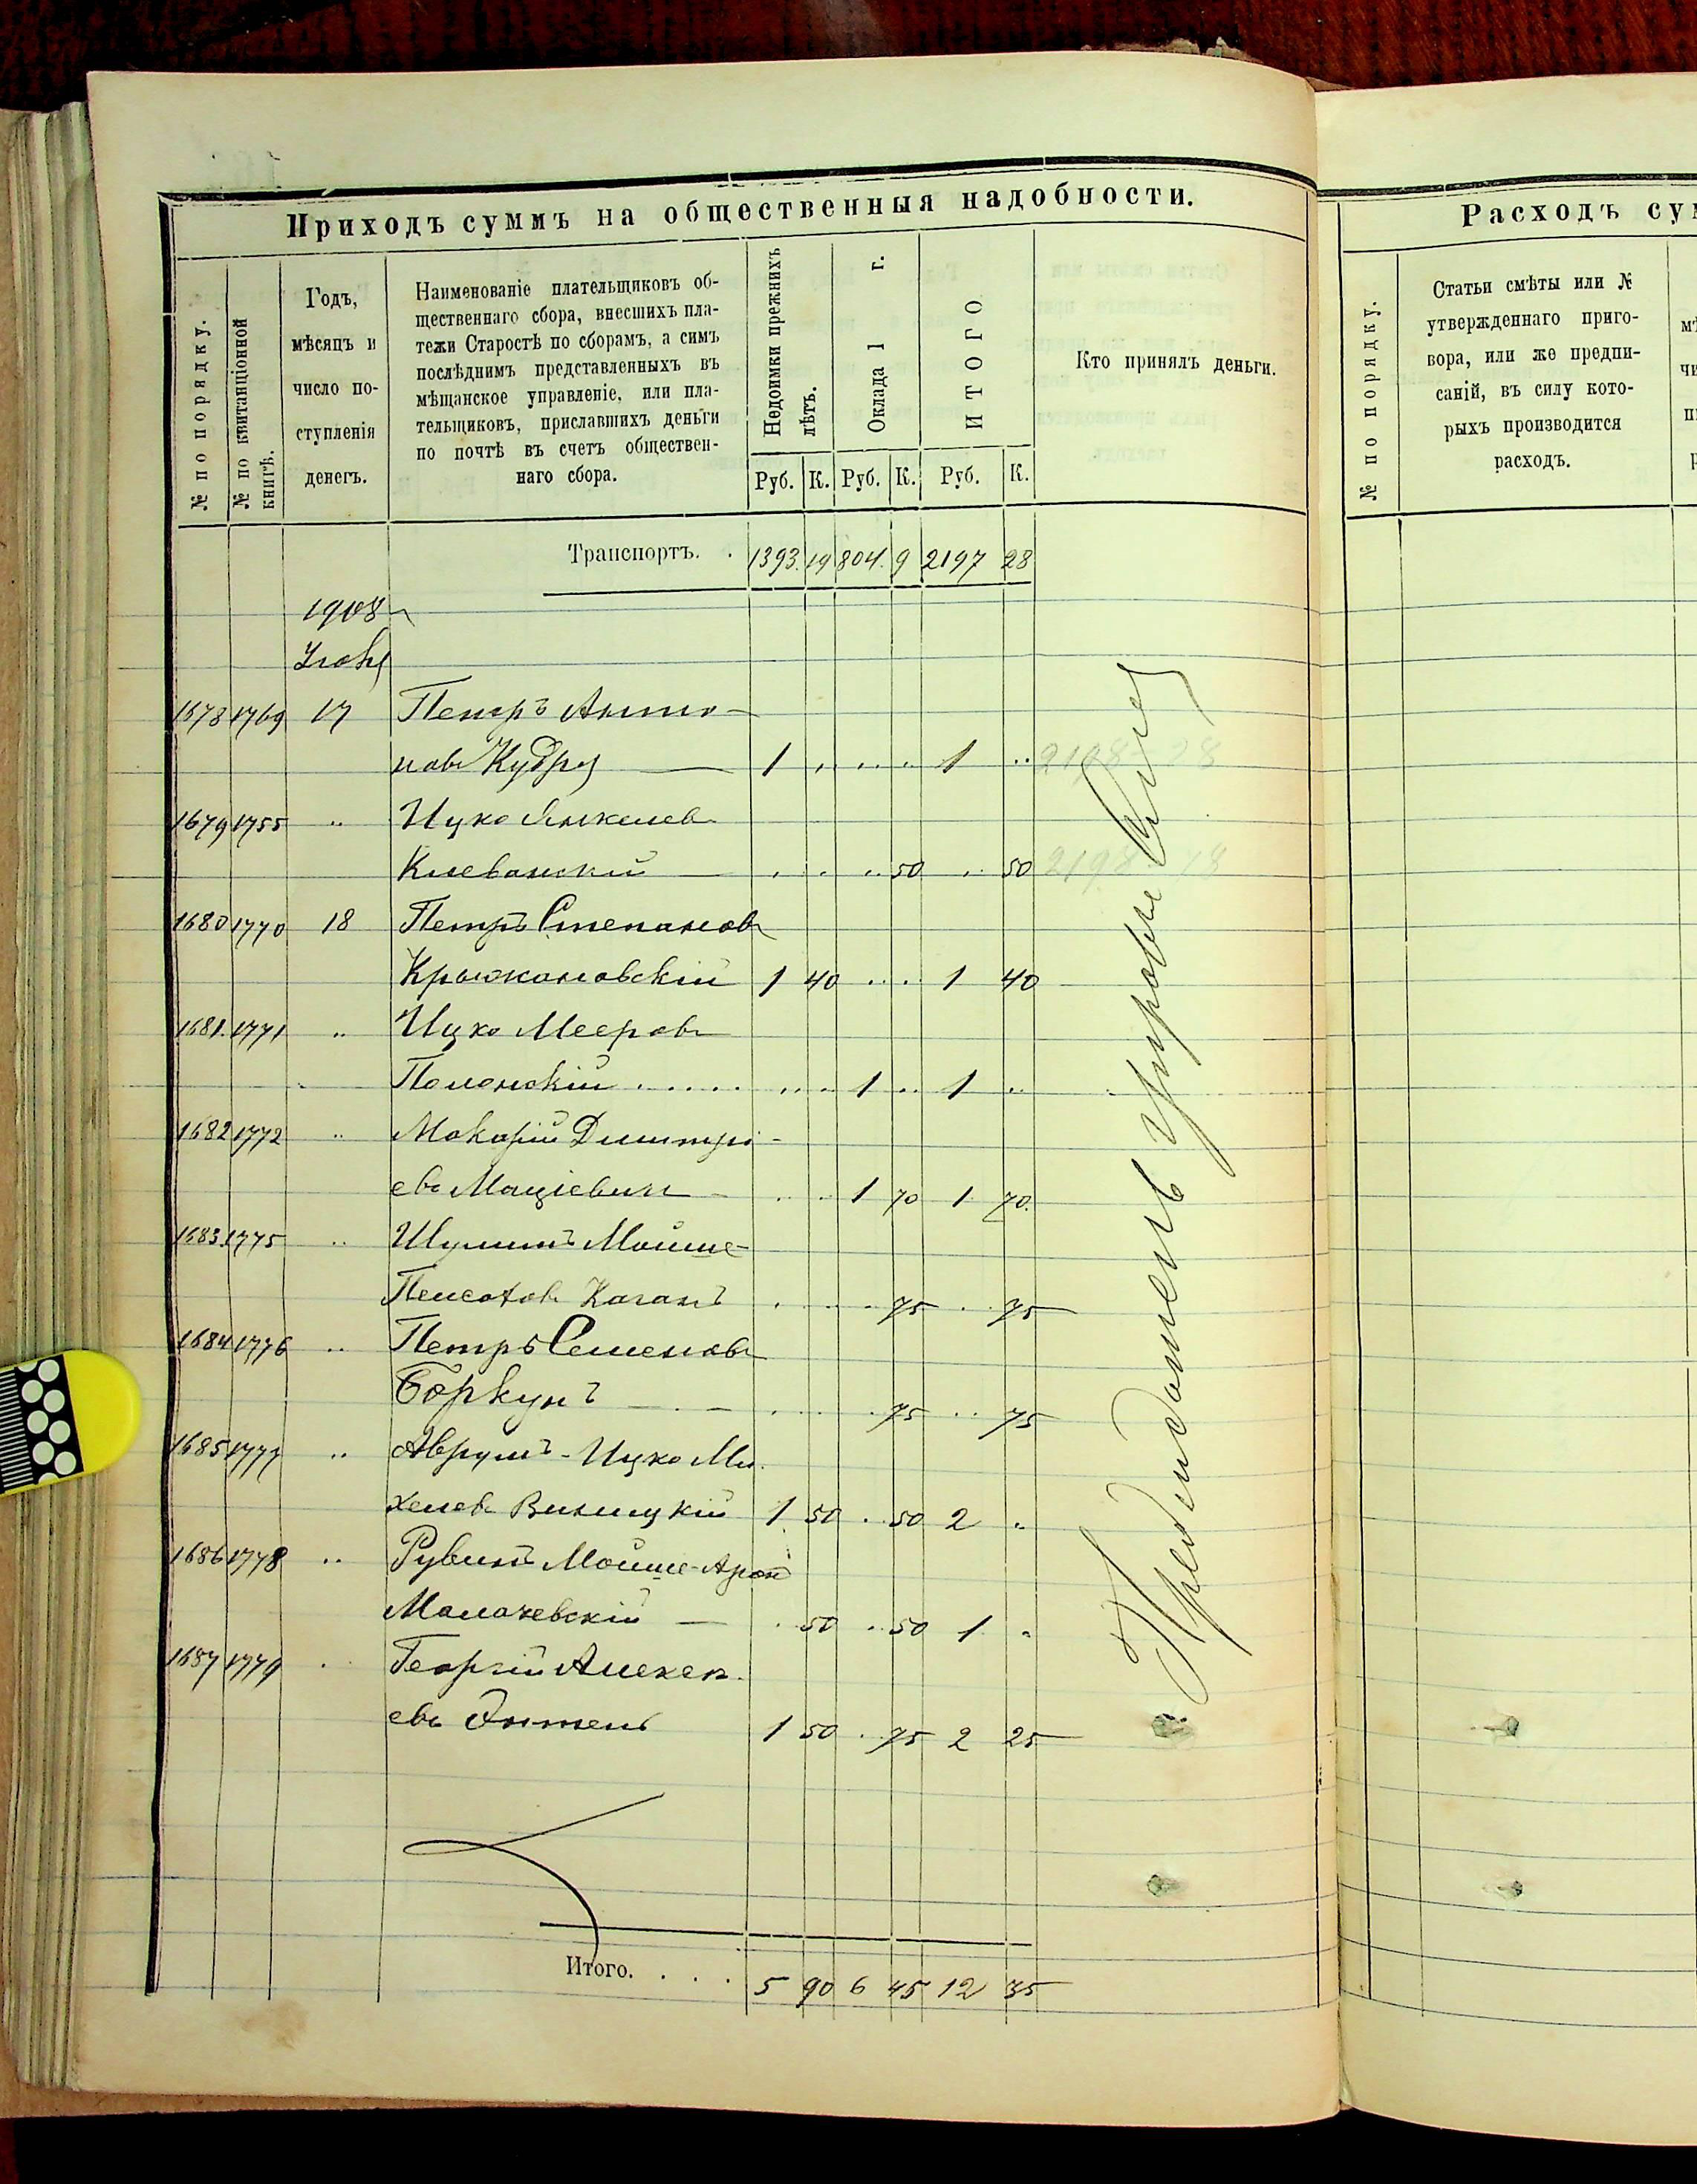 Приходъ суммъ на общественныя надобности.
№ по порядку.
№ по квитанціонной
книгѣ.
Годъ,
мѣсяцъ и
число по-
ступленія
денегъ.
Наименованіе плательщиковъ об-
щественнаго сбора, внесшихъ пла-
тежи Старостѣ по сборамъ, а симъ
послѣднимъ представленныхъ въ
мѣщанское управленіе, или пла-
тельщиковъ, приславшихъ деньги
по почтѣ въ счетъ обществен-
наго сбора.
Недоимки прежнихъ
лѣтъ.
Оклада 1 г.
ИТОГО
Руб. К. Руб. К. Руб. К.
Кто принялъ деньги.
Транспортъ. . 1393. 19 804. 9 2197 28
1908
1678 1769 17 Петръ Анто-
новъ 1 1 2198-28
1679 1755 " Ицко Янкелев
Клеванский 50 50 2198 78
1680 1770 18 Петръ Степановъ
Крыжановскій 1 40 1 40
1681. 1771 " Ицко Мееровъ
Полонскій 1 1
1682 1772 " Макарій Дмитрі-
евъ Мацієвич 1 70 1 70.
1683 1775 " Шулимъ Мойше-
Каганъ 75 75
1684 1776 " Петръ Семеновъ
Боркунъ 75 75
1685 1777 " Аврумъ-Ицко Ми
хелев Виницкій 1 50 50 2 "
1686 1778 " Рувинъ Мойше-Арон
Малачевскій 50 50 1 "
1687 1779 Георгій Алексѣ
евъ 1 50 75 2 25
Итого. . . . 5 90 6 45 12 35
Расходъ сум
№ по порядку.
Статьи смѣты или №
утвержденнаго приго-
вора, или же предпи-
саній, въ силу кото-
рыхъ производится
расходъ.